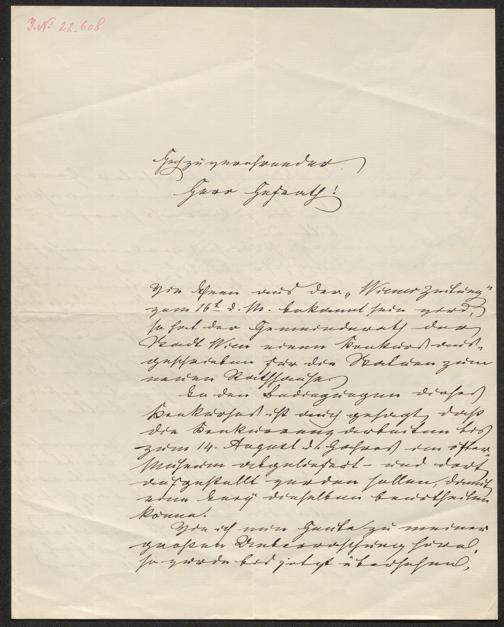 J. № 22.608
Hochzuverehrender
Herr Hofrath!
Wie Ihnen aus der „Wiener Zeitung"
vom 16t d. M. bekannt sein wird,
so hat der Gemeinderath der
Stadt Wien einen Konkurs aus-
geschrieben für die Statuen zum
neuen Rathhause
In den Bedingungen dieses
Konkurses ist auch gesagt, daß
die Konkurrenzarbeiten bis
zum 14. August ds. Jahres im öster.
Museum abgeliefert - und dort
aufgestellt werden sollen, damit
eine Jury dieselben beurtheilen
könne.
Wie ich nun heute zu meiner
großen Ueberraschung höre,
so wurde bis jetzt übersehen,